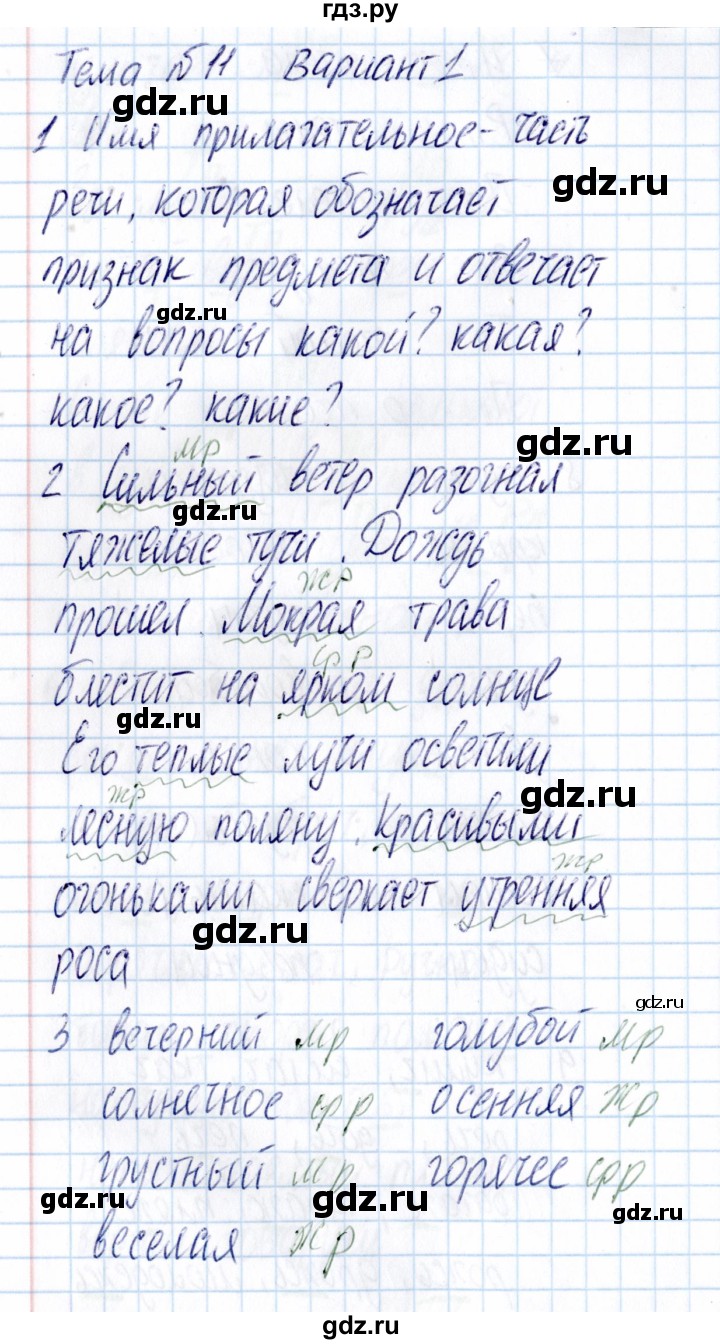 гдз.ру
Тема №11 Вариант 1
gdz.ru
1 Имя прилагательное - часть
gdz.ru
речи, которая обозначает
признак предмета и отвечает
gdz.ru
на вопросы какой? какая?
какое? какие?
gdz.ru
мр
2 Сильный ветер разогнал
gdz.ru
тяжелые тучи. Дождь
жр
прошел. Мокрая трава
ср р
блестит на ярком солнце
gdz.ru
Его теплые лучи осветили
gdz.ru
жр
лесную поляну. Красивыми
жр
огоньками сверкает утренняя
gdz.ru
роса
gdz.ru
3 вечерний мр голубой мр
солнечное ср р осенняя жр
грустный мр горячее ср р
gdz.ru gdz.ru
gdz.ru
веселая жр
gdz.ru